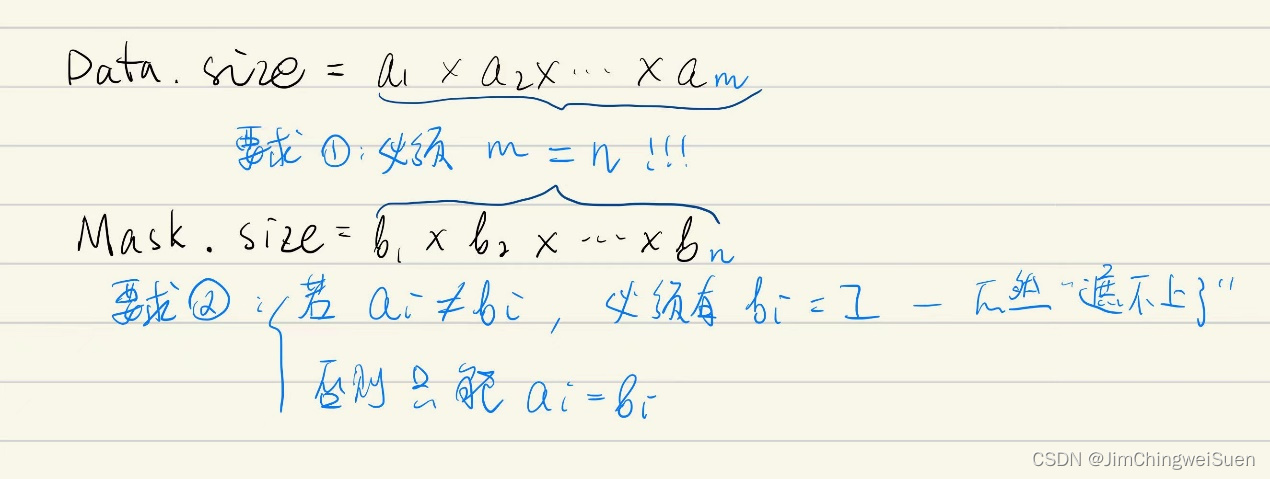 Data.size = a₁ × a₂ × ··· × aₘ
要求 ①: 必须 m = n !!!
Mask.size = b₁ × b₂ × ··· × bₙ
要求 ②: { 若 aᵢ ≠ bᵢ, 必须有 bᵢ = 1 — 不然 “遮不上了”
否则只能 aᵢ = bᵢ
CSDN @JimChingweiSuen